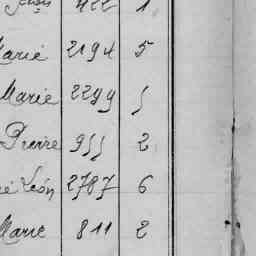 422 1
Marié 2194 5
Marie 2299 5
Pierre 955 2
é Léon 2787 6
Marie 811 2